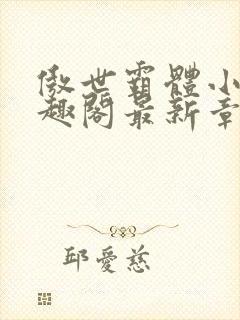 傲世霸體小
趣閣最新章
邱愛慈